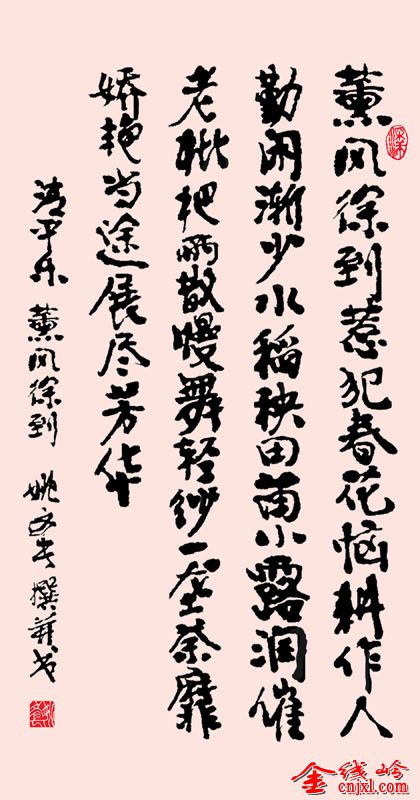 薰风徐到惹犯春花恼耕作人
勤闲渐少水稻秧田苗小露润催
老枇杷雨散慢舞轻纱一垄荼靡
娇艳当途展尽芳华
清平乐 薰风徐到 姚 撰并书
金线岭
cnjxl.com